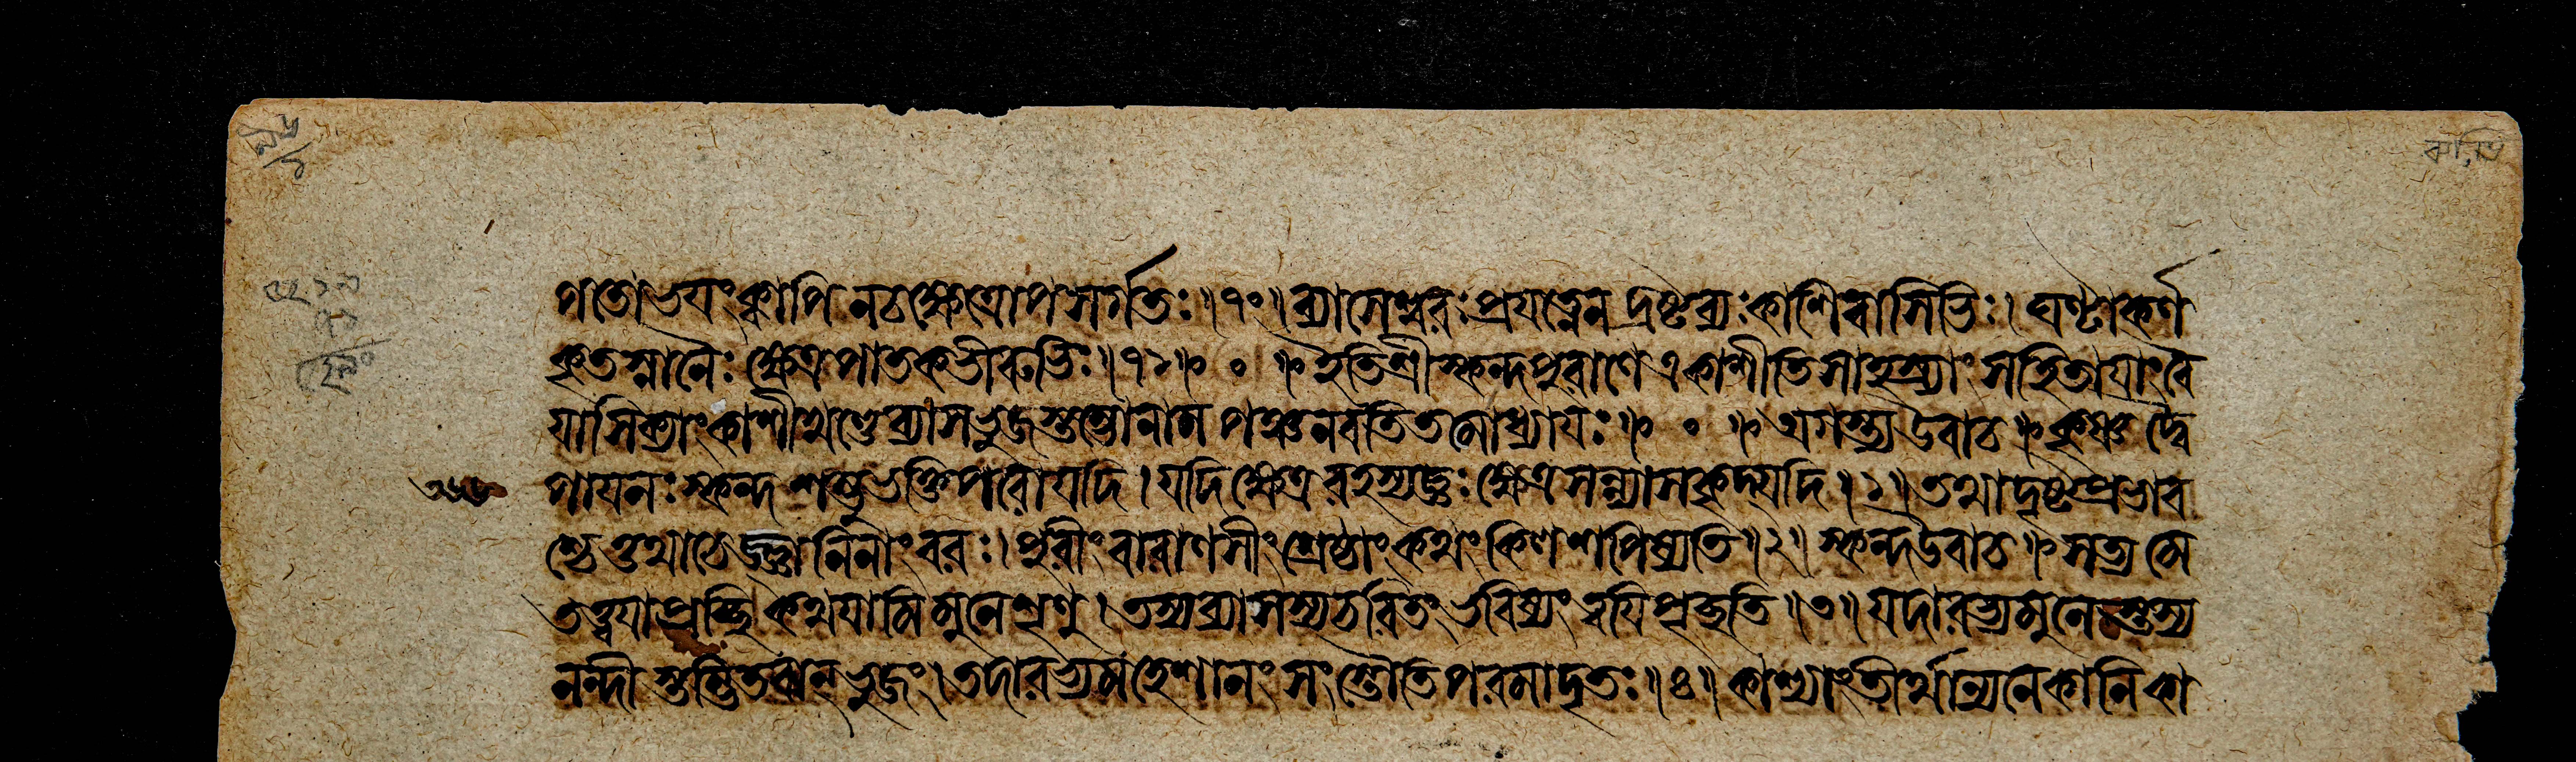 পতো ভযং ক্বাপি ন চ ক্ষেত্রোপসর্গতঃ॥৭০॥ব্যাসেশ্বরঃ প্রযত্নেন দ্রষ্টব্যঃ কাশিবাসিভিঃ। ঘণ্টাকর্ণ
কৃতস্নানৈঃ ক্ষেত্রপাতকভীরুভিঃ॥৭১॥ ০ ॥ইতিশ্রীস্কন্দপুরাণে একাশীতিসাহস্র্যাং সংহিতাযাং বৈ
যাসিক্যাং কাশীখণ্ডে ব্যাসভুজস্তম্ভোনাম পঞ্চনবতিতমোধ্যাযঃ॥ ০ ॥অগস্ত্য উবাচ॥কৃষ্ণদ্বৈ
পাযনঃ স্কন্দ শম্ভুভক্তিপরো যদি। যদি ক্ষেত্ররহস্যজ্ঞঃ ক্ষেত্রসন্ন্যাসকৃদ্যদি॥১॥তথাদৃষ্টপ্রভাব
শ্চেত্তথাচেজ্জ্ঞানিনাং বরঃ।পুরীং বারাণসীং শ্রেষ্ঠাং কথং কিণ শপিষ্যতি॥২॥স্কন্দউবাচ॥সত্যমে
তত্ত্বযাপ্রচ্ছি কথযামি মুনে শৃণু। তস্য ব্যাসস্য চরিতং ভবিষ্যং ত্বযি পৃচ্ছতি॥৩॥যদারভ্য মুনে তস্য
নন্দী স্তম্ভিতবান্ ভুজং।তদারভ্য মহেশানং সংস্তৌতি পরমাদৃতঃ॥৪॥কাশ্যাং তীর্থান্যনেকানি কা